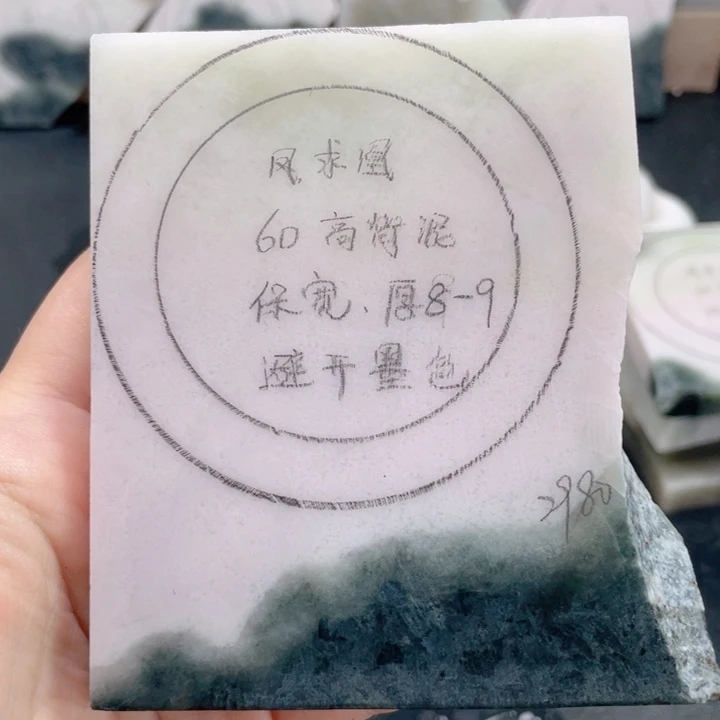 凤求凰
60 高
保宽、厚8-9
避开墨色
2980